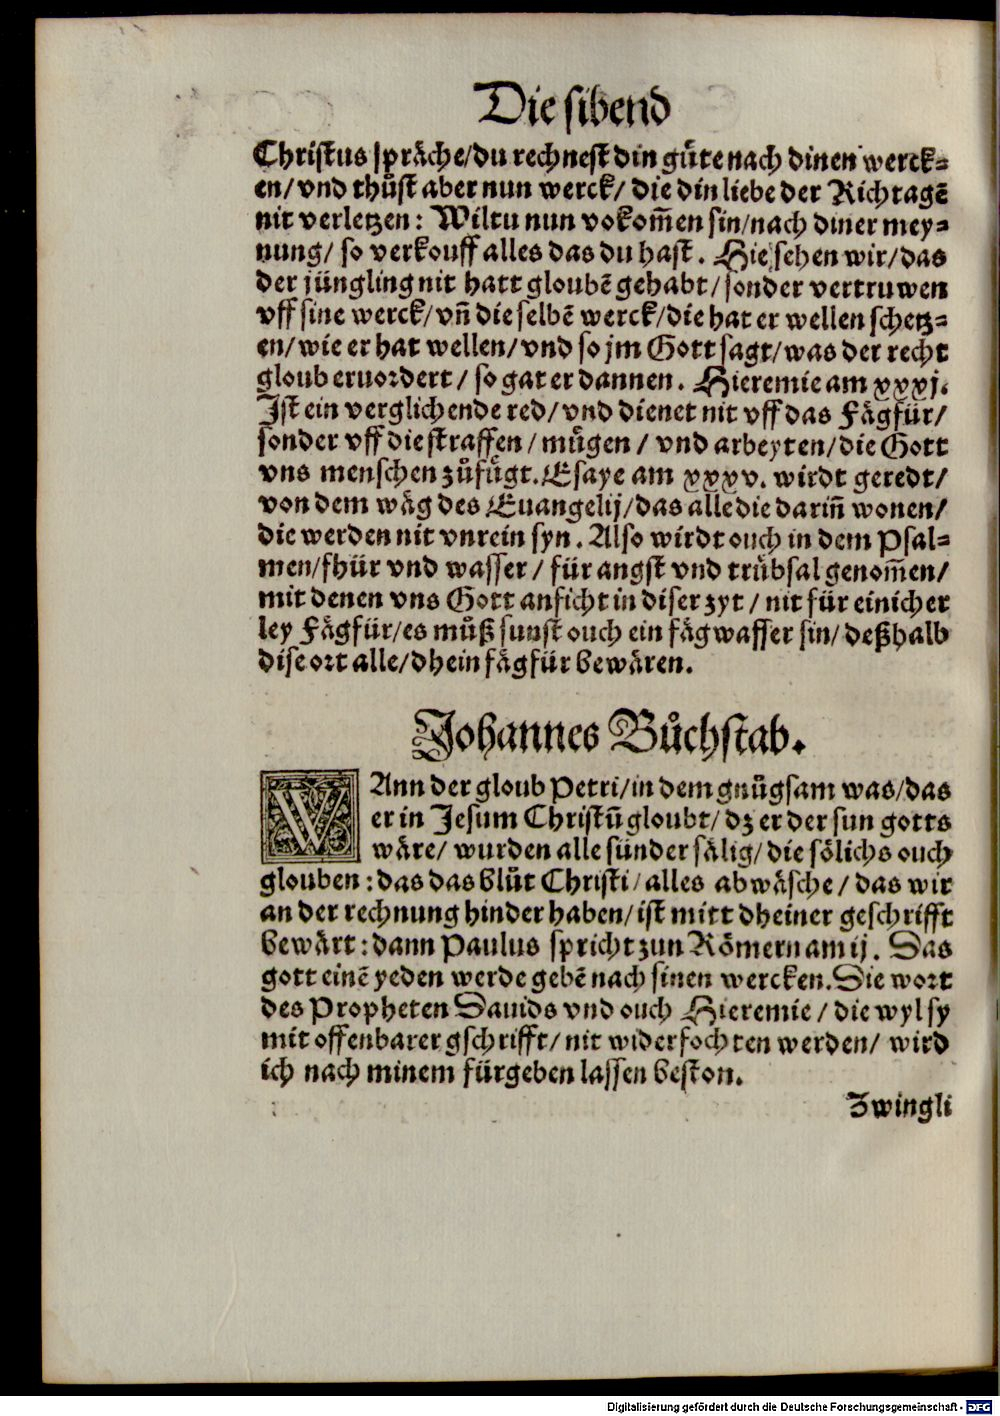 Die sibend
Christus spräche/du rechnest din gůte nach dinen werck⸗
en/vnd thůst aber nun werck/ die din liebe der Richtagē
nit verletzen: Wiltu nun vokom̄en sin/nach diner mey⸗
nung/ so verkouff alles das du hast. Hie sehen wir/das
der jüngling nit hatt gloubē gehabt/sonder vertruwen
vff sine werck/vn̄ die selbē werck/die hat er wellen schetz⸗
en/wie er hat wellen/vnd so jm Gott sagt/was der recht
gloub eruordert/ so gat er dannen. Hieremie am xxxj.
Ist ein verglichende red/vnd dienet nit vff das Fägfür/
sonder vff die straffen/ mügen/ vnd arbeyten/die Gott
vns menschen zůfügt. Esaye am xxxv. wirdt geredt/
von dem wäg des Euangelij/das alle die darin̄ wonen/
die werden nit vnrein syn. Also wirdt ouch in dem Psal⸗
men/fhür vnd wasser/ für angst vnd trübsal genom̄en/
mit denen vns Gott anficht in diser zyt/ nit für einicher
ley Fägfür/es můß sunst ouch ein fägwasser sin/ deßhalb
dise ort alle/dhein fägfür bewären.
Johannes Bůchstab.
WAnn der gloub Petri/in dem gnůgsam was/das
er in Jesum Christū gloubt/ dz er der sun gotts
wäre/ wurden alle sünder sälig/ die sölichs ouch
glouben: das das blůt Christi/alles abwäsche/ das wir
an der rechnung hinder haben/ist mitt dheiner geschrifft
bewärt: dann Paulus spricht zun Römern am ij. Das
gott einē yeden werde gebē nach sinen wercken. Die wort
des Propheten Dauids vnd ouch Hieremie/ die wyl sy
mit offenbarer gschrifft/ nit widerfochten werden/ wird
ich nach minem fürgeben lassen beston.
Zwingli
Digitalisierung gefördert durch die Deutsche Forschungsgemeinschaft - DFG